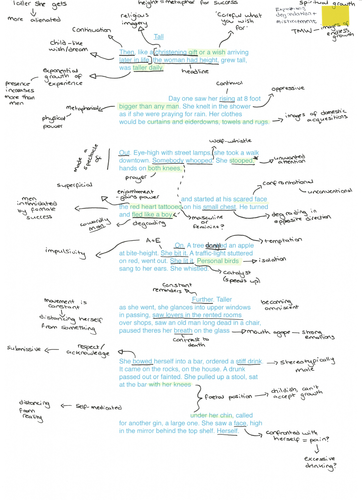 taller she gets
↓
more alienated
height = metaphor for success
spiritual growth
Exposing
degradation +
mistreatment
TMW →
endless growth
religious imagery
"Careful what you wish for"
Continuation
Tall
child-like wish/dream
Then, like a christening gift or a wish arriving
later in life, the woman had height, grew tall,
was taller daily.
headline
exponential growth of experience
presence increases more than men
control
oppressive
Day one saw her rising at 8 foot
metaphorical
bigger than any man. She knelt in the shower
physical power
as if she were praying for rain. Her clothes
would be curtains and eiderdowns, towels and rugs.
images of domestic acquisitions
wolf-whistle
Out. Eye-high with street lamps, she took a walk
downtown. Somebody whooped. She stooped,
unwanted attention
hands on both knees,
prayer
confrontational
superficial
enjambment - gains power
and started at his scared face
unconventional
men intimidated by female success
the red heart tattooed on his small chest. He turned
and fled like a boy.
degrading in opposite direction
degrading
masculine or feminine?
A+E
On. A tree dangled an apple
temptation
impulsivity
at bite-height. She bit it. A traffic-light stuttered
on red, went out. She lit it. Personal birds
isolation
sang to her ears. She whistled.
catalyst (speeds up)
constant reminders
Further. Taller
movement is constant
as she went, she glances into upper windows
becoming omniscient
in passing, saw lovers in the rented rooms
distancing herself from something
over shops, saw an old man long dead in a chair,
paused there, her breath on the glass
mouth agape → strong emotions
contrast to death
submissive
respect/ acknowledge
She bowed herself into a bar, ordered a stiff drink.
stereotypically male
It came on the rocks, on the house. A drunk
passed out or fainted. She pulled up a stool, sat
at the bar with her knees
foetal position
childish, can't accept growth
distancing from reality
self-medicated
under her chin, called
for another gin, a large one. She saw a face, high
in the mirror behind the top shelf. Herself.
confronted with herself = pain?
excessive drinking?